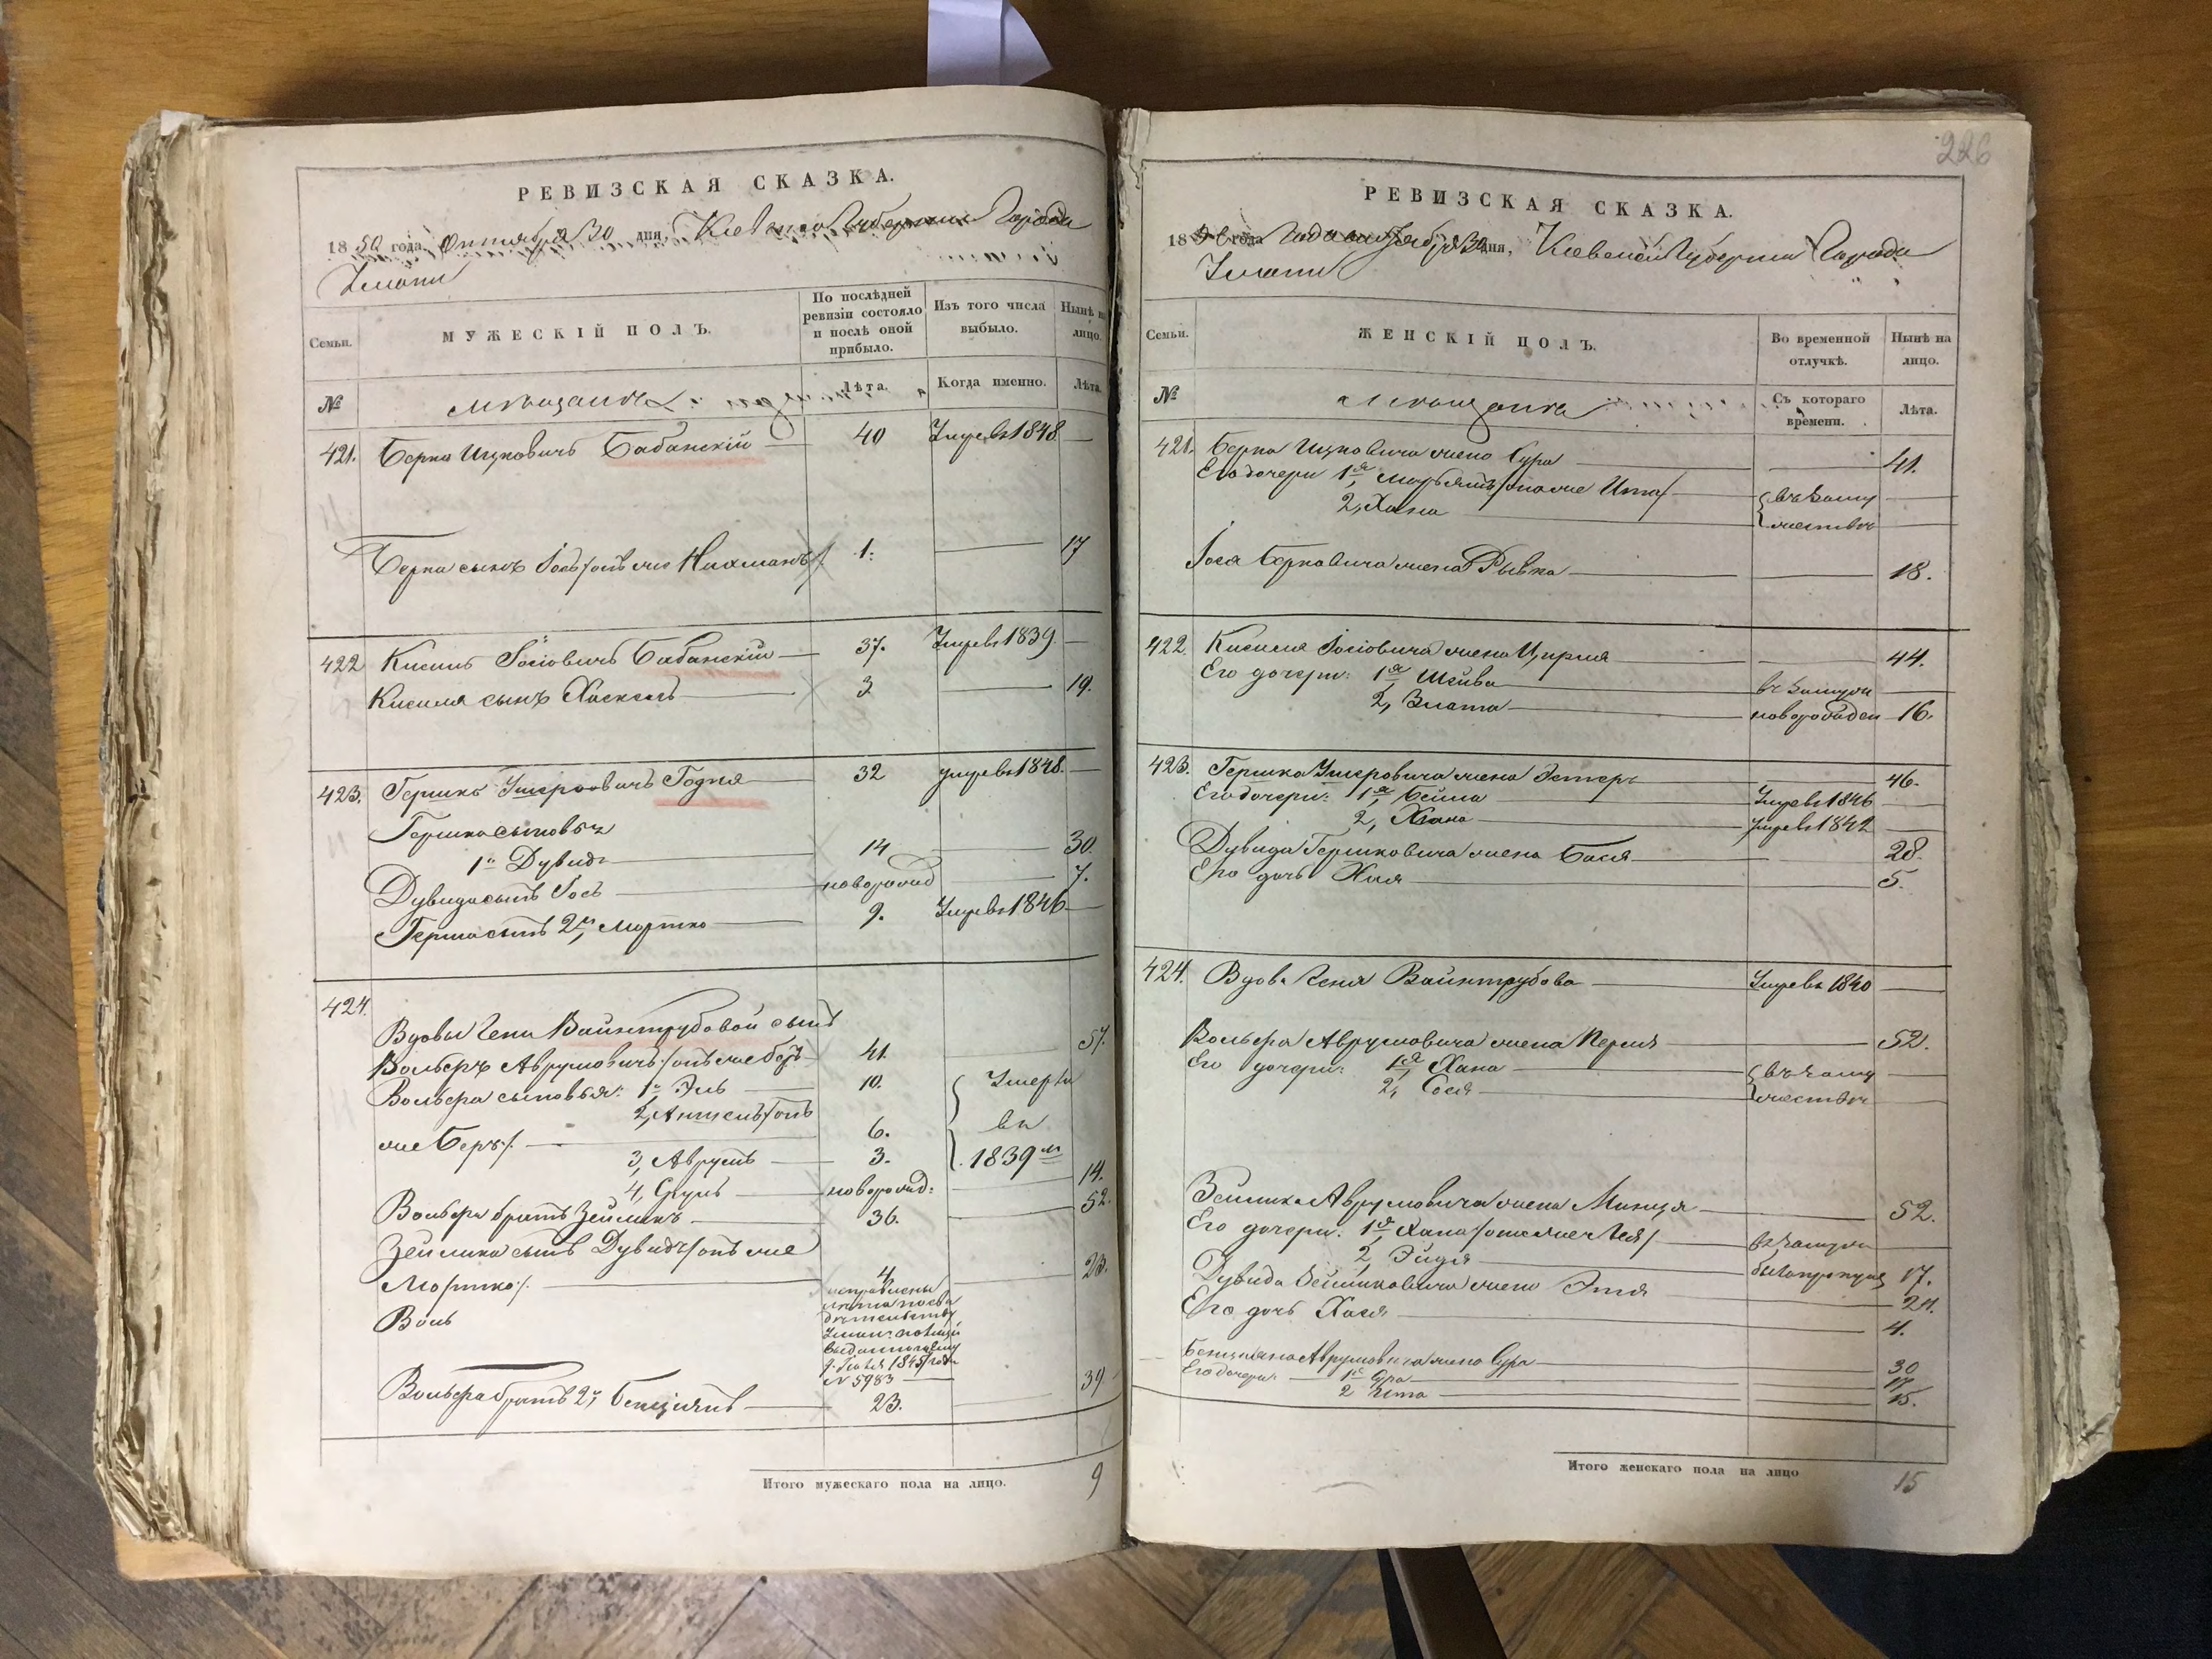 РЕВИЗСКАЯ СКАЗКА.
1850 года Октября 30 дня, Киевской Губернии Города
Умани
Семьи.
МУЖЕСКІЙ ПОЛЪ.
По послѣдней ревизіи состояло и послѣ оной прибыло.
Изъ того числа выбыло.
Нынѣ на лицо.
№
мѣщане
Лѣта.
Когда именно.
Лѣта.
421. Берко Ицковичъ Бабанскій 40 Умре въ 1848
Берка сынъ Іось /онъ же Нахманъ/ 1. 17
422 Кисиль Іосіовичъ Бабанскій 37. Умре въ 1839.
Кисиля сынъ Хаскель 3 19.
423. Гершко Умеровичъ Годня 32 умре въ 1848.
Гершка сыновья
1й Дувидъ 14 30
Дувида сынъ Іось новорожд 7.
Герша сынъ 2й, Мортко 9. Умре въ 1846
424.
Вдовы Гени Вайнтрубовой сынъ
Вольфъ Аврумовичъ /онъ же Беръ 41. 57.
Вольфа сыновья: 1й Эль 10. Умерли
2, Аншель /онъ
же Беръ/. 6. въ
3, Аврумъ 3. 1839 м
4, Сруль новорожд: 14.
Вольфа братъ Зейликъ 36. 52.
Зейлика сынъ Дувидъ /онъ же
Мортко/. 4 23.
исправлены
лѣта
Воль
1845 года
№ 5983
Вольфа братъ 2й, Бенціянъ 23. 39
Итого мужескаго пола на лицо. 9
226
РЕВИЗСКАЯ СКАЗКА.
1850 года Октября 30 дня, Киевской Губерніи Города
Умани
Семьи.
ЖЕНСКІЙ ПОЛЪ.
Во временной отлучкѣ.
Нынѣ на лицо.
№
мѣщанка
Съ котораго времени.
Лѣта.
421. Берка Ицковича жена Сура 41.
Его дочери 1я, Марьямъ /она же Ита/ въ заму
2, Хана жествѣ
Іося Берковича жена Рывка 18.
422. Кисиля Іосіовича жена Цирля 44.
Его дочери: 1я Шейва въ замуж
2, Злата новорожден 16.
423. Гершка Умеровича жена Эстеръ 46.
Его дочери: 1я, Бейла Умре въ 1846
2, Хана умре въ 1842
Дувида Гершковича жена Бася 28.
Его дочь Хая 5.
424. Вдова Геня Вайнтрубова Умре въ 1840
Вольфа Аврумовича жена Перля 52.
Его дочери: 1я Хана въ заму
2, Сося жествѣ
Зейлика Аврумовича жена Минця 52.
Его дочери: 1я, Хана /она же Лея/ въ замуж
2, Эйдя 17.
Дувида Зейликовича жена Этя 24.
Его дочь Хася 4.
Бенціяна Аврумовича жена Сура 30
Его дочери: 1я Сура 17
2 Ита 15.
Итого женскаго пола на лицо 15